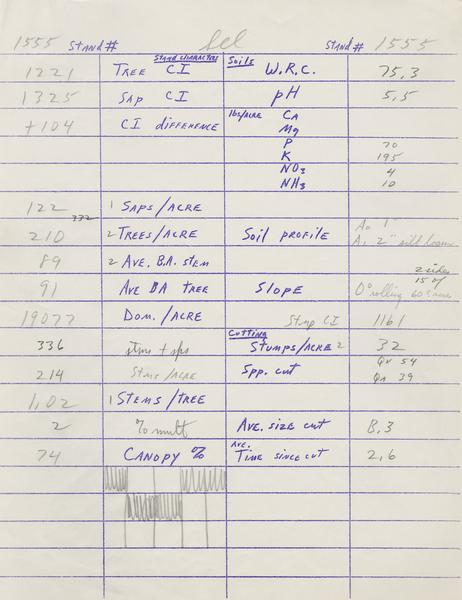 1555 Stand # Sel Stand # 1555
Stand characters Soils
1221 Tree CI W.R.C. 75.3
1325 Sap CI pH 5.5
+104 CI difference lbs/acre Ca
Mg
P 70
K 195
NO3 4
NH3 10
122 1 Saps/acre
332
210 2 Trees/acre Soil profile A0 1"
A1 2" silt loam
89 2 Ave. B.A. stem
2 sides
15 of
91 Ave BA tree Slope 0° rolling 60
19077 Dom./acre Stmp CI 1161
Cutting
336 stms + sps Stumps/acre 2 32
214 Stms/acre Spp. cut Qv 54
Qa 39
1.02 1 Stems/tree
2 % mult Ave. size cut 8.3
74 Canopy % Ave. Time since cut 2.6